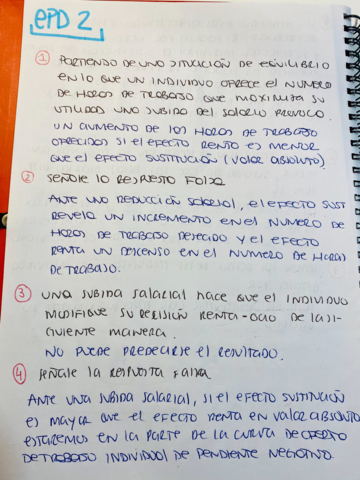 EPD 2
① PARTIENDO DE UNA SITUACIÓN DE EQUILIBRIO
EN LA QUE UN INDIVIDUO OFRECE EL NUMERO
DE HORAS DE TRABAJO QUE MAXIMIZA SU
UTILIDAD UNA SUBIDA DEL SALARIO PROVOCA.
UN AUMENTO DE LAS HORAS DE TRABAJO
OFRECIDAS SI EL EFECTO RENTA ES MENOR
QUE EL EFECTO SUSTITUCIÓN (VALOR ABSOLUTO).
② SEÑALE LA RESPUESTA FALSA
ANTE UNA REDUCCIÓN SALARIAL, EL EFECTO SUST
REVELA UN INCREMENTO EN EL NUMERO DE
HORAS DE TRABAJO DESEADO Y EL EFECTO
RENTA UN DESCENSO EN EL NUMERO DE HORAS
DE TRABAJO.
③ UNA SUBIDA SALARIAL HACE QUE EL INDIVIDUO
MODIFIQUE SU DECISIÓN RENTA-OCIO DE LA SI-
GUIENTE MANERA.
NO PUEDE PREDECIRSE EL RESULTADO.
④ SEÑALE LA RESPUESTA FALSA
ANTE UNA SUBIDA SALARIAL, SI EL EFECTO SUSTITUCIÓN
ES MAYOR QUE EL EFECTO RENTA EN VALOR ABSOLUTO
ESTAREMOS EN LA PARTE DE LA CURVA DE OFERTA
DE TRABAJO INDIVIDUAL DE PENDIENTE NEGATIVA.